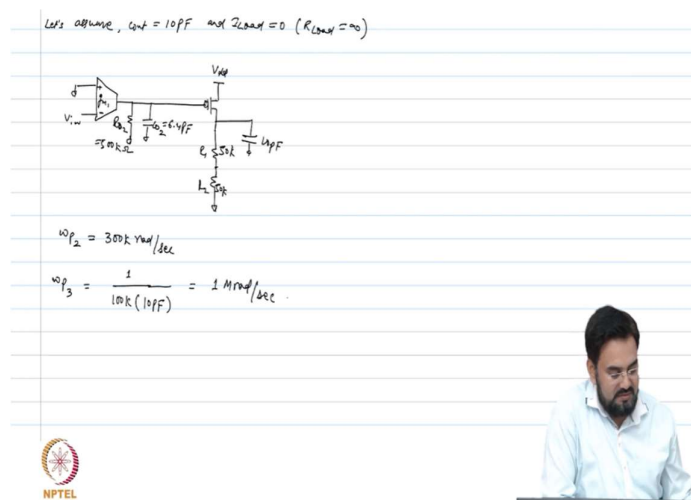 Let's assume, Cout = 10PF and ILoad = 0 (RLoad = ∞)
Vdd
+
gm1
-
Vin
RO2
= 500kΩ
CO2 = 6.4PF
10PF
R1
50k
R2
50k
ωp2 = 300k rad/sec
ωp3 = 1 / 100k(10PF) = 1 Mrad/sec.
NPTEL